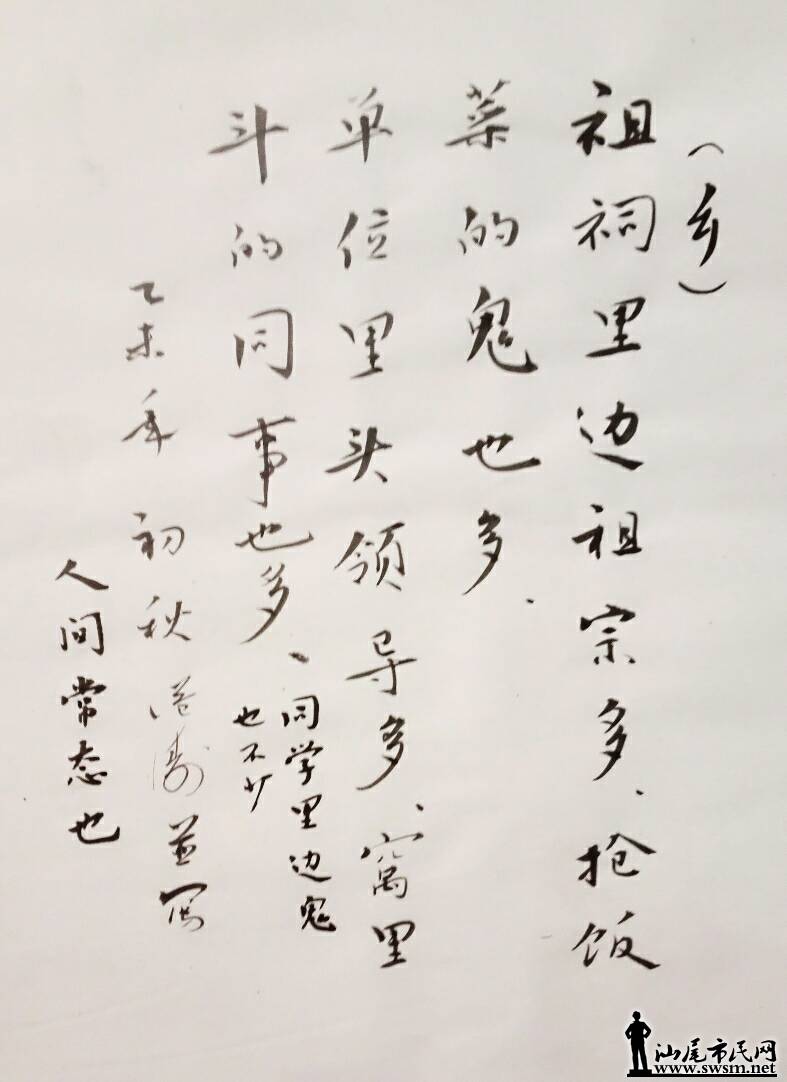 (乡)
祖祠里边祖宗多、抢饭
菜的鬼也多.
单位里头领导多、窝里
斗的同事也多、
同学里边鬼
也不少
乙未年初秋 並写
人间常态也
汕尾市民网
www.swsm.net